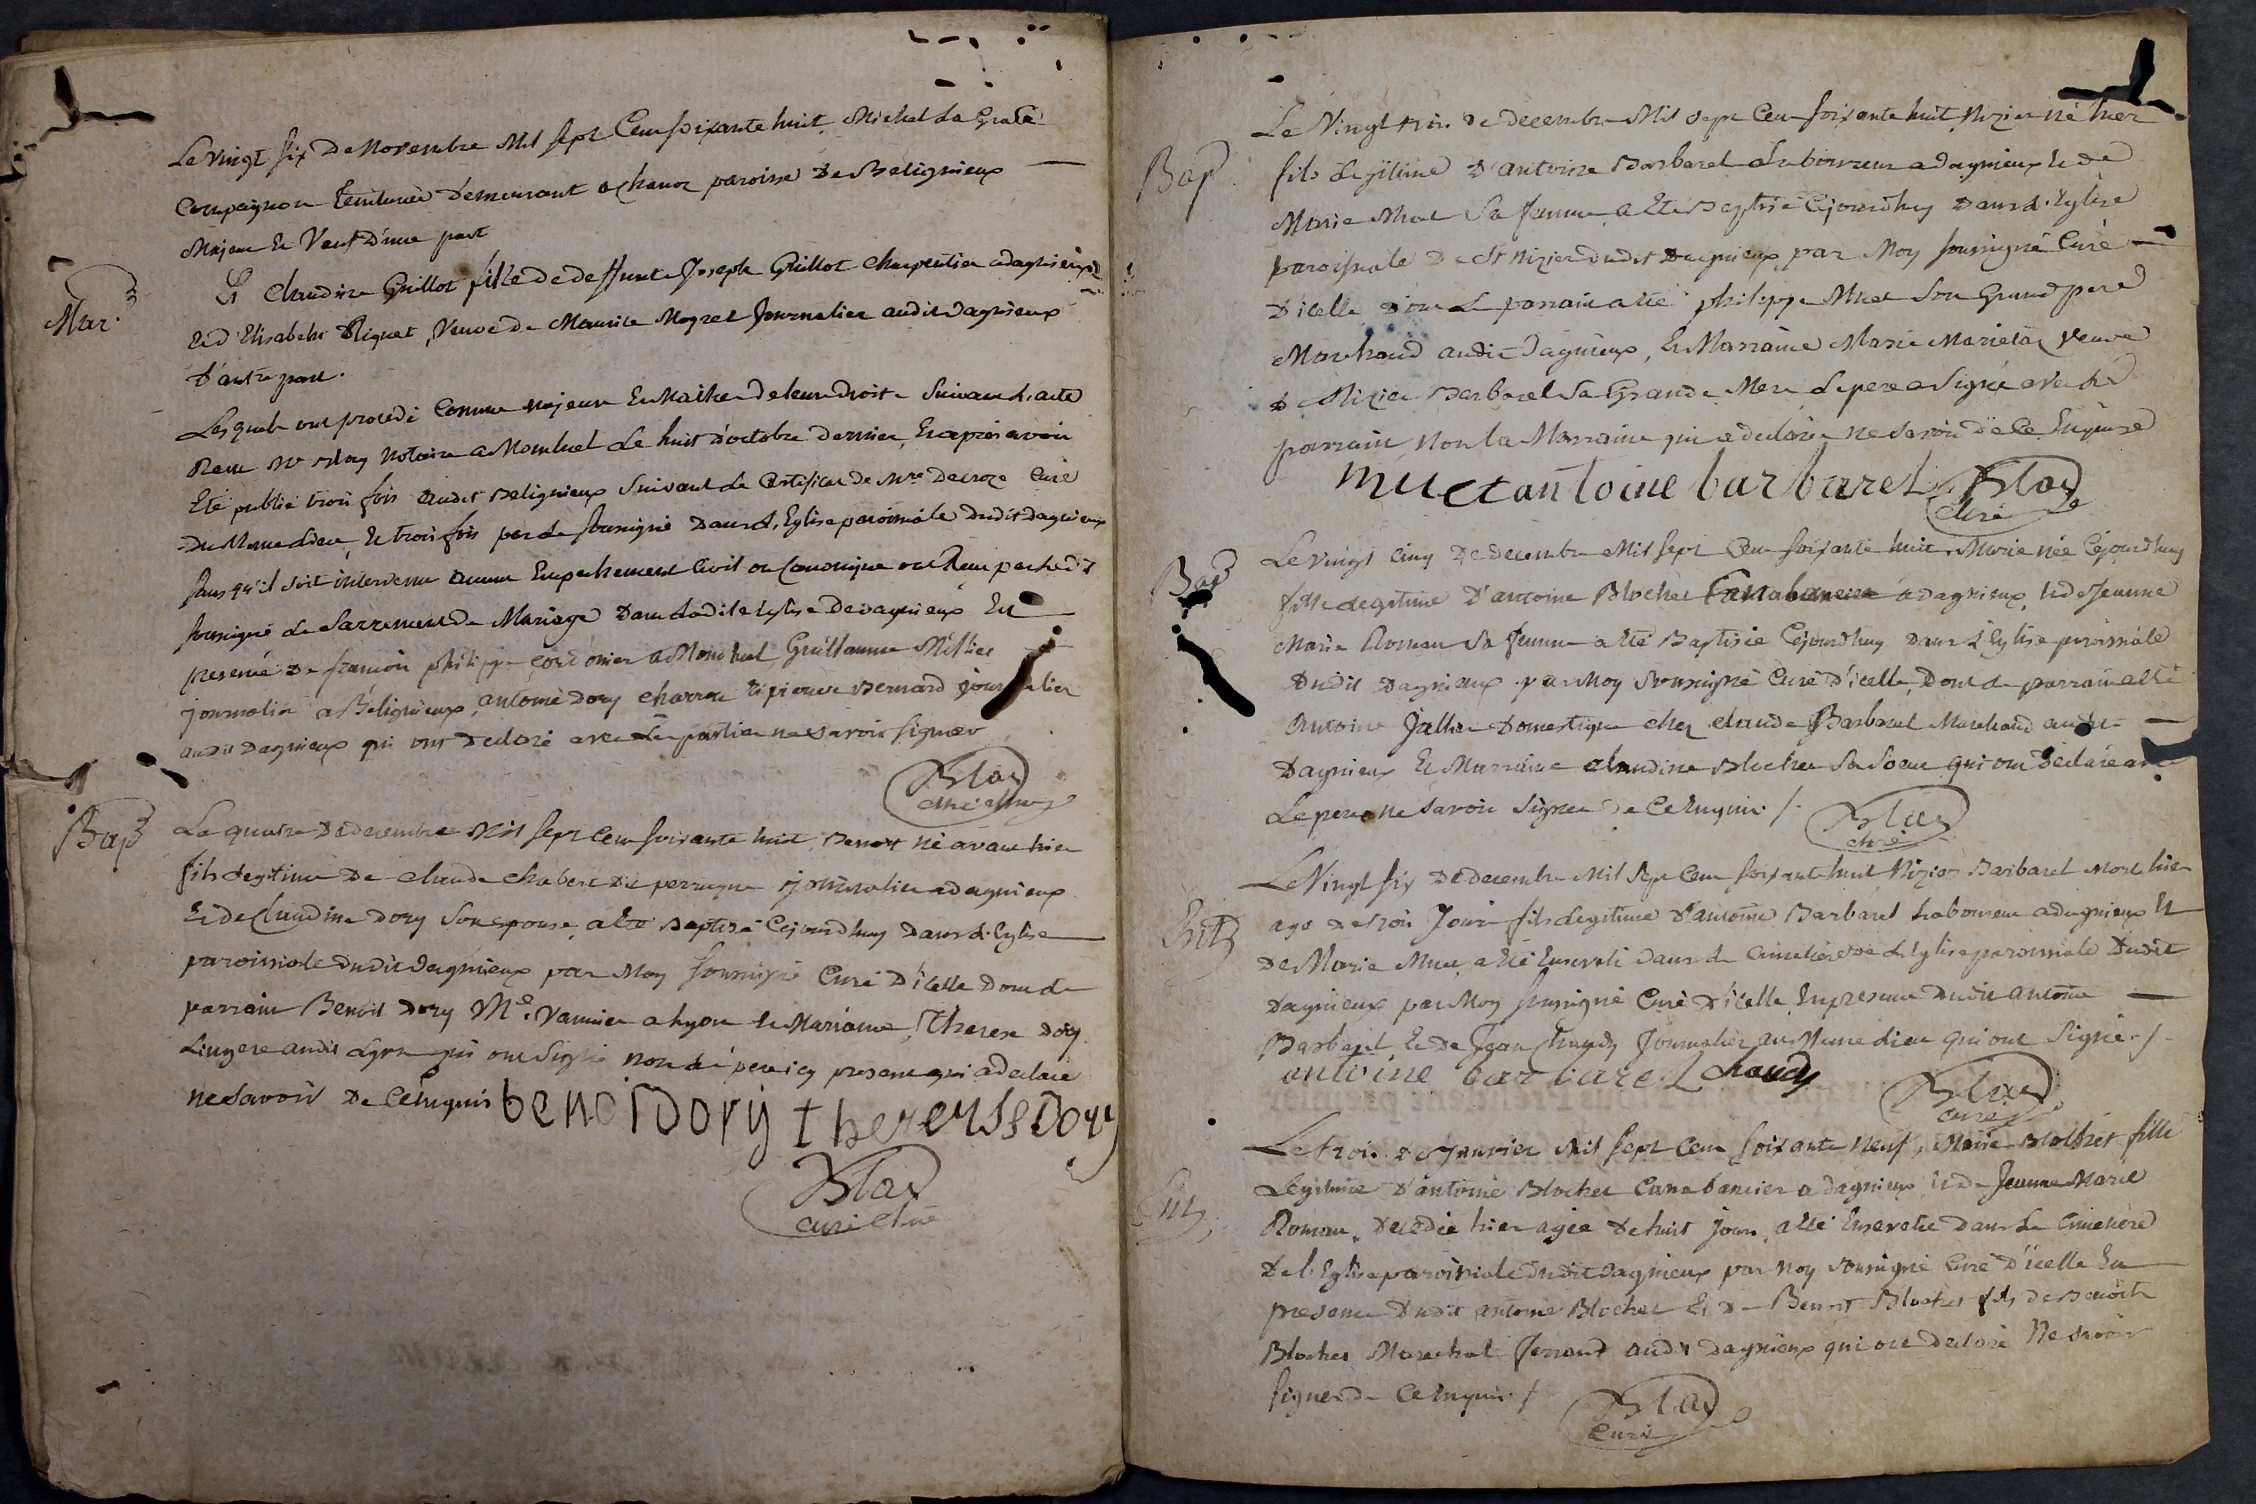 Mar.
Le vingt six De Novembre Mil sept Cent soixante huit, Michel La
Compagnon demeurant a paroisse De Beligneux
Majeur Et Veuf D'une part
Et Claudine Guillot fille de deffunt Joseph Guillot charpentier a dagnieux
Et d'Elisabeth Riquet, Veuve de Maurice Mogret Journalier audit Dagnieux
D'autre part.
Lesquels ont procedé Comme majeurs Et Maitres de leurs droits Suivant L'acte
Recu Me notaire a Montluel Le huit d'octobre dernier, Et apres avoir
Eté publié trois fois audit Beligneux Suivant Le Certificat de Mre Decroze Curé
Du Meme Lieu, Et trois fois par Le soussigné Dans L'Eglise paroissiale Dudit Dagnieux
sans qu'il soit intervenu aucun Empechement Civil ou Canonique ont Recu par le dt
soussigné Le Sacrement De Mariage Dans Ladite Eglise De Dagnieux En
presence De francois philippe cordonier a Montluel Guillaume Millier
journalier a Beligneux, antoine Dory charron Et pierre Bernard journalier
audit Dagnieux qui ont Declaré avec Les parties ne savoir signer
Blay
curé
Bap
Le quatre De decembre Mil sept Cent soixante huit Benoit né avant hier
fils Legitime De claude chabert Dit journalier a dagnieux
Et de Claudine Dory Son epouse, a Eté Baptisé Cejourdhuy Dans L'Eglise
paroissiale dudit Dagnieux par Moy soussigné Curé D'icelle Dont Le
parrain Benoit Dory Me. Vannier a Lyon Et Maraine, Therese Dory
Lingere audit Lyon qui ont Signé non Le pere icy present qui a declaré
ne savoir De Ce Enquis benoit Dory theresse Dory
Blay
curé
Bap
Le Vingt trois De Decembre Mil Sept Cent soixante huit Nizier né hier
fils Legitime D'antoine Barbaret Laboureur a Dagnieux Et de
Marie Muet Sa femme, a Eté Baptisé Cejourdhuy Dans L'Eglise
paroissiale De St Nizier dudit Dagnieux, par Moy soussigné Curé
D'icelle Dont Le parrain a eté philippe Muet Son Grand pere
Marchand audit Dagnieux, Et Marraine Marie Veuve
De Nizier Barbaret Sa Grande Mere Le pere a Signé avec Le
parrain, Non la Marraine qui a declaré ne Savoir De Ce Enquise
muet antoine barbaret Blay
curé
Bap
Le vingt cinq De decembre Mil sept Cent soixante huit Marie née Cejourdhuy
fille Legitime D'antoine Blochet Cartabancier a dagnieux, Et de Jeanne
Marie Roman Sa femme a Eté Baptisée Cejourdhuy Dans L'Eglise paroissiale
Dudit Dagnieux par Moy Soussigné Curé D'icelle, Dont Le parrain a Eté
Antoine Domestique chez claude Barbaret Marchand audit
Dagnieux Et Marraine claudine Blochet Sa Soeur qui ont déclaré avec
Le pere ne Savoir Signer De Ce Enquis. /.
Blay
curé
Le Vingt six De decembre Mil Sept Cent soixante huit Nizier Barbaret Mort hier
agé de trois Jours fils Legitime D'antoine Barbaret Laboureur a dagnieux Et
De Marie Muet, a Eté Enseveli dans Le Cimetiere De L'Eglise paroissiale Dudit
Dagnieux par Moy soussigné Curé D'icelle En presence Dudit antoine
Barbaret Et De Jean Chaudy Journalier au Meme Lieu qui ont Signé. /.
antoine barbaret chaudy
Blay
curé
Le trois De Janvier Mil sept Cent soixante neuf, Marie Blochet fille
Legitime D'antoine Blochet a dagnieux, Et de Jeanne Marie
Roman, Decedée hier agée De huit Jours, a Eté Ensevelie dans Le Cimetiere
De l'Eglise paroissiale Dudit Dagnieux par Moy Soussigné Curé D'icelle En
presence Dudit antoine Blochet Et De Benoit Blochet fils de Benoit
Blochet Marechal ferrant audit Dagnieux qui ont Declaré Ne Savoir
signer De Ce Enquis. /.
Blay
Curé